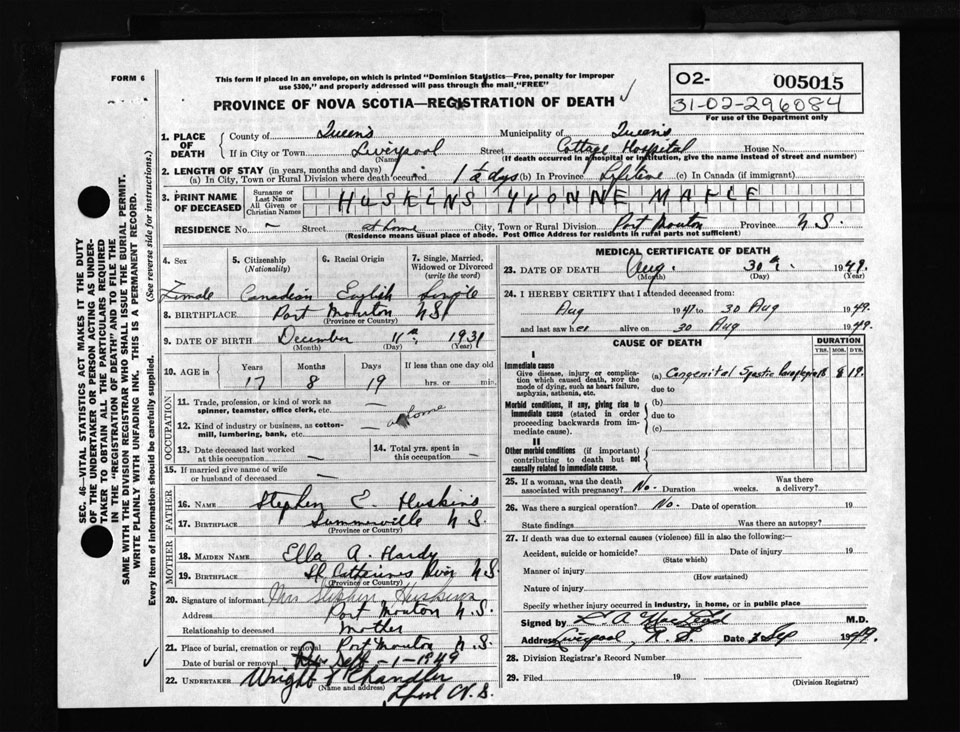 FORM 6
This form if placed in an envelope, on which is printed "Dominion Statistics—Free, penalty for improper
use $300," and properly addressed will pass through the mail, "FREE"
PROVINCE OF NOVA SCOTIA—REGISTRATION OF DEATH ✓
02- 005015
31-02-296084
For use of the Department only
SEC. 46—VITAL STATISTICS ACT MAKES IT THE DUTY
OF THE UNDERTAKER OR PERSON ACTING AS UNDER-
TAKER TO OBTAIN ALL THE PARTICULARS REQUIRED
IN THE "REGISTRATION OF DEATH" AND TO FILE THE
SAME WITH THE DIVISION REGISTRAR WHO SHALL ISSUE THE BURIAL PERMIT.
WRITE PLAINLY WITH UNFADING INK. THIS IS A PERMANENT RECORD.
Every item of information should be carefully supplied. (See reverse side for instructions.)
1. PLACE OF DEATH { County of Queens Municipality of Queens
If in City or Town Liverpool Street Cottage Hospital House No.
(Name) (If death occurred in a hospital or institution, give the name instead of street and number)
2. LENGTH OF STAY (in years, months and days)
(a) In City, Town or Rural Division where death occurred 1½ days (b) In Province Lifetime (c) In Canada (if immigrant)
3. PRINT NAME OF DECEASED { Surname or Last Name All Given or Christian Names HUSKINS YVONNE MARIE
RESIDENCE No. — Street at home City, Town or Rural Division Port Mouton Province N.S.
(Residence means usual place of abode. Post Office Address for residents in rural parts not sufficient)
4. Sex 5. Citizenship (Nationality) 6. Racial Origin 7. Single, Married, Widowed or Divorced (write the word)
Female Canadian English Single
8. BIRTHPLACE Port Mouton NS
(Province or Country)
9. DATE OF BIRTH December 11th 1931
(Month) (Day) (Year)
10. AGE in { Years Months Days If less than one day old
17 8 19 hrs. or min.
OCCUPATION
11. Trade, profession or kind of work as
spinner, teamster, office clerk, etc. — at home
12. Kind of industry or business, as cotton-
mill, lumbering, bank, etc. —
13. Date deceased last worked at this occupation — 14. Total yrs. spent in this occupation —
15. If married give name of wife
or husband of deceased —
FATHER
16. NAME Stephen E. Huskins
17. BIRTHPLACE Summerville N.S.
(Province or Country)
MOTHER
18. MAIDEN NAME Ella A. Hardy
19. BIRTHPLACE St Catherines River N.S.
(Province or Country)
20. Signature of informant Mrs Stephen Huskins
Address Port Mouton N.S.
Relationship to deceased mother
21. Place of burial, cremation or removal Port Mouton N.S.
Date of burial or removal Sept-1-1949
22. UNDERTAKER Wright & Chandler
(Name and address) L'pool N.S.
MEDICAL CERTIFICATE OF DEATH
23. DATE OF DEATH Aug. 30th. 1949.
(Month) (Day)
24. I HEREBY CERTIFY that I attended deceased from:
Aug 1947 to 30 Aug 1949.
and last saw her alive on 30 Aug 1949.
CAUSE OF DEATH DURATION
YRS. MOS. DYS.
I
Immediate cause
Give disease, injury or complica-
tion which caused death, NOT the
mode of dying, such as heart failure,
asphyxia, asthenia, etc.
(a) Congenital Spastic Paraplegia 8 19.
due to
Morbid conditions, if any, giving rise to
immediate cause (stated in order
proceeding backwards from im-
mediate cause).
(b)
due to
(c)
II
Other morbid conditions (if important)
contributing to death but not
causally related to immediate cause.
25. If a woman, was the death Was there
associated with pregnancy? No. Duration weeks. a delivery?
26. Was there a surgical operation? No. Date of operation 19
State findings Was there an autopsy?
27. If death was due to external causes (violence) fill in also the following:—
Accident, suicide or homicide? Date of injury 19
(State which)
Manner of injury
(How sustained)
Nature of injury
Specify whether injury occurred in industry, in home, or in public place
Signed by MacLeod M.D.
Address Liverpool, N.S. Date Sep 1949.
28. Division Registrar's Record Number
29. Filed 19
(Division Registrar)